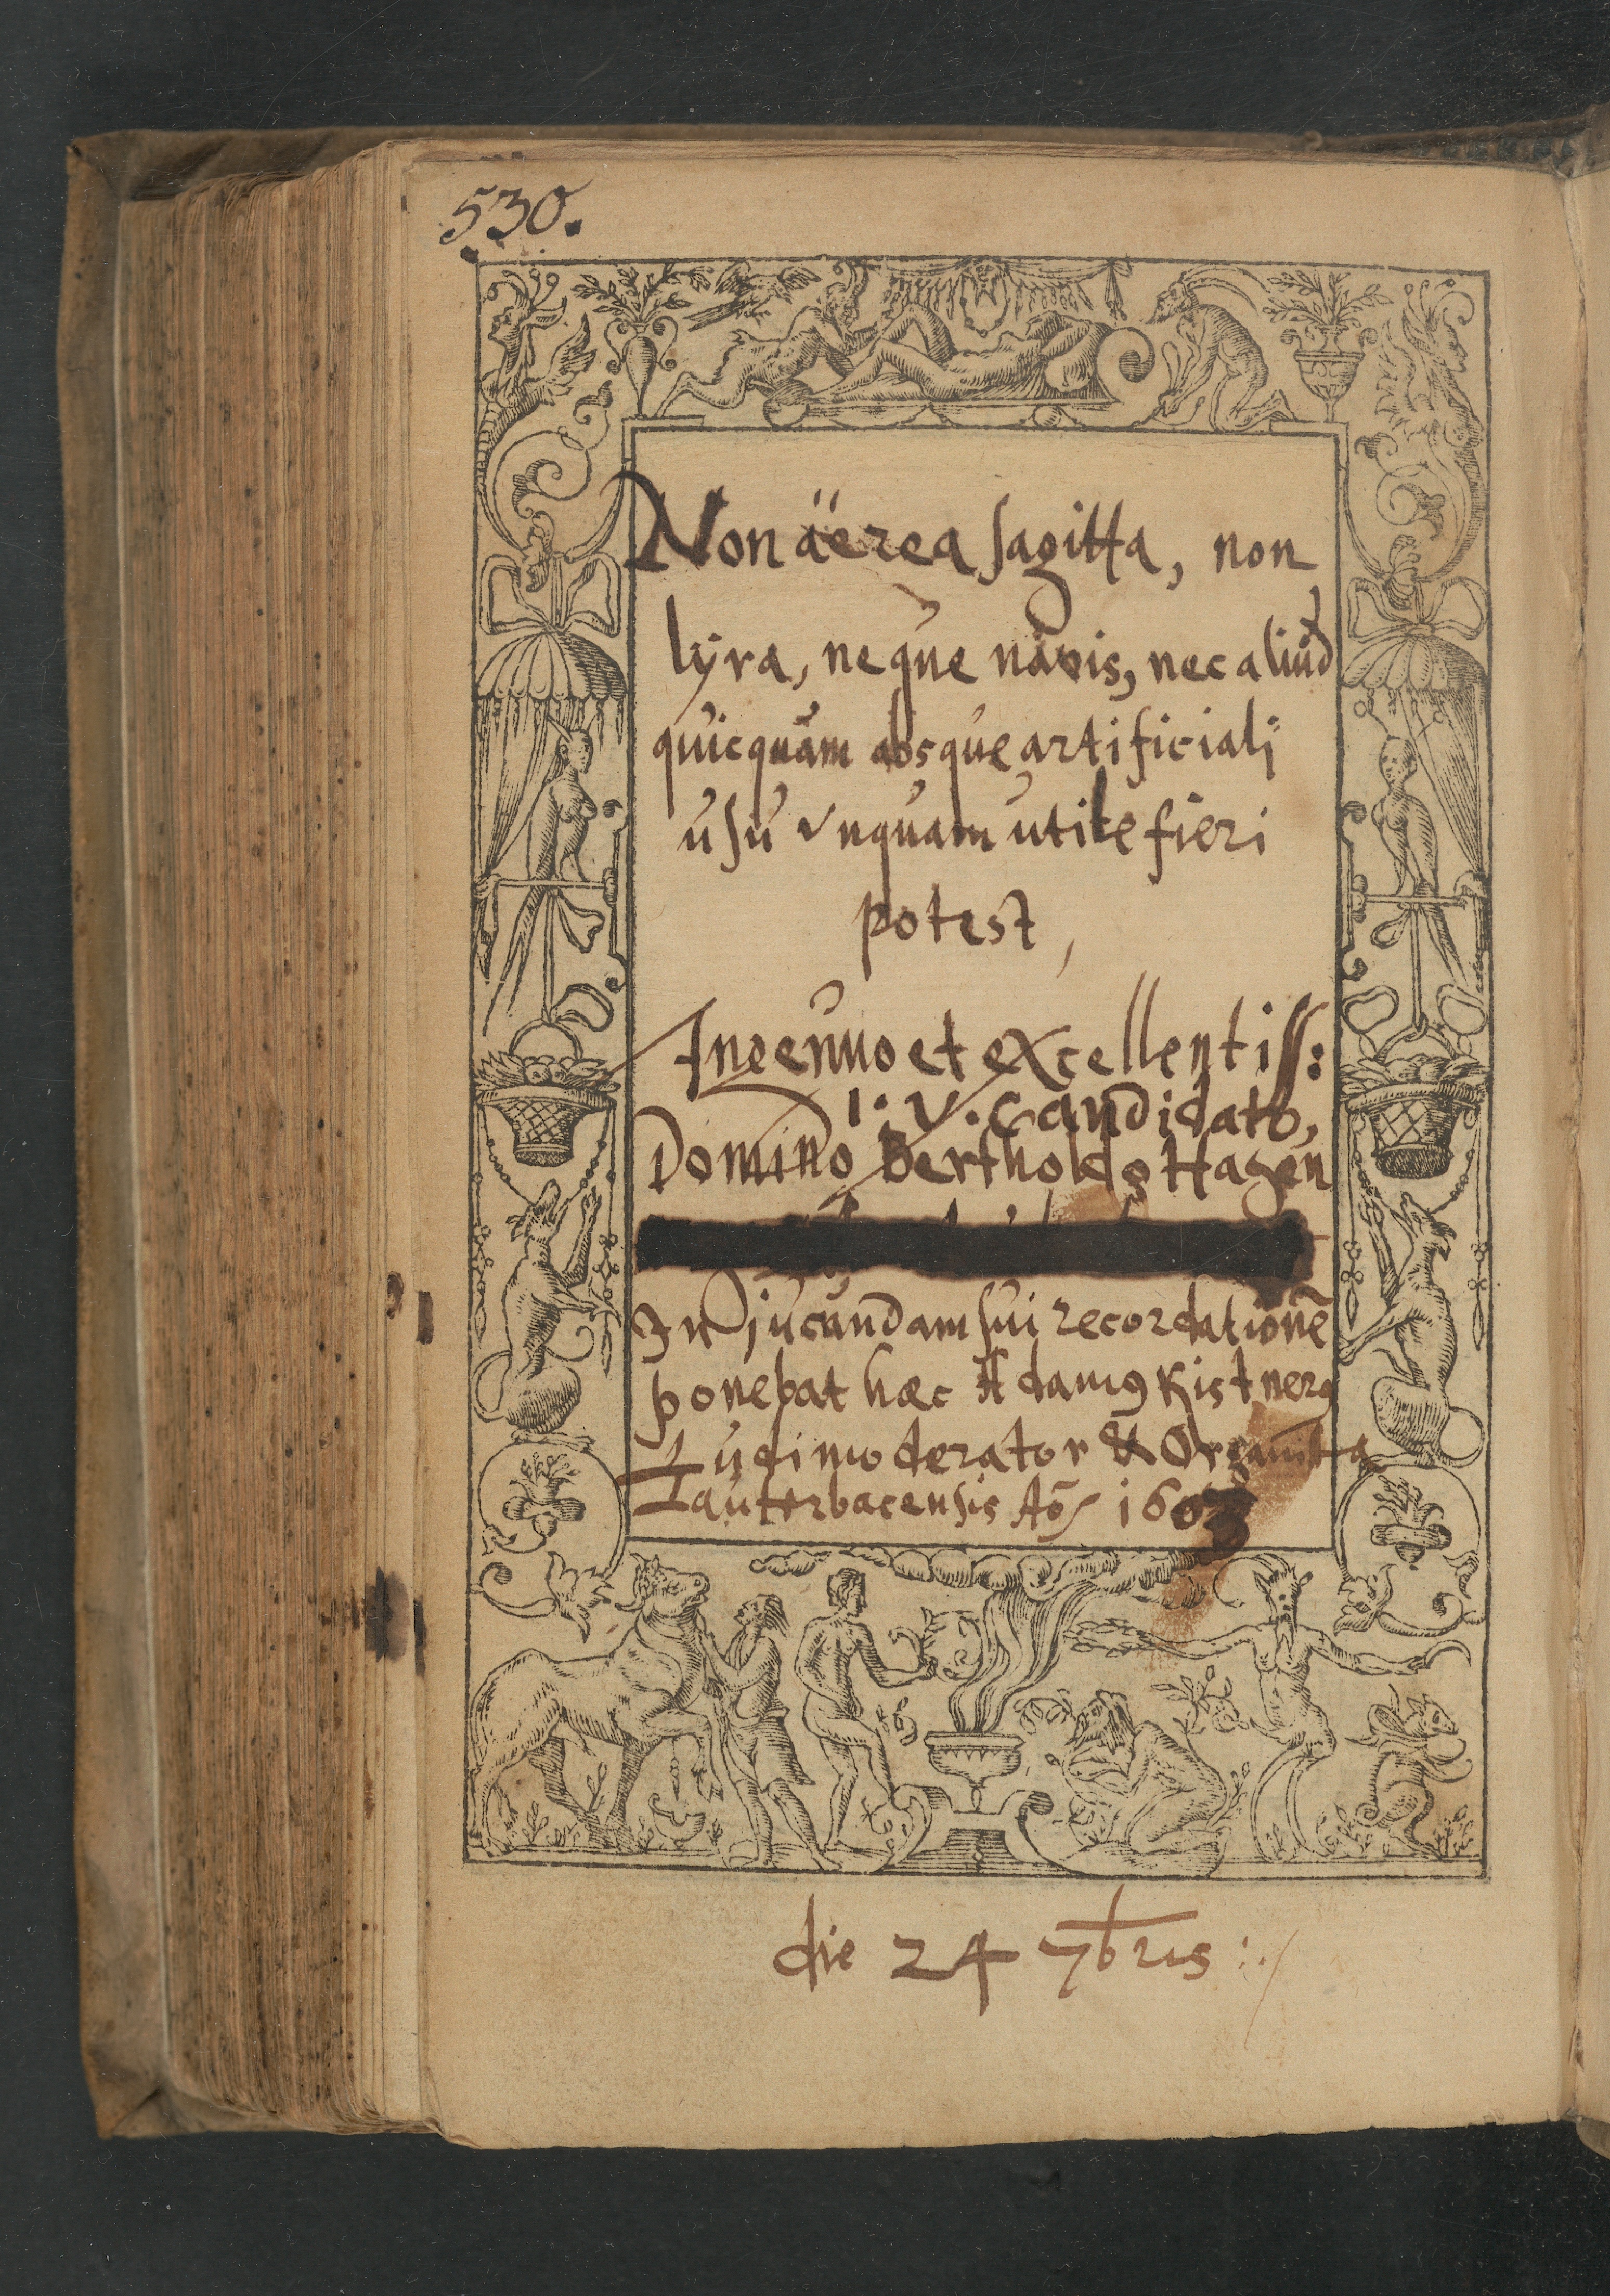 530.
Non äerea sagitta, non
lÿra, neque navis, nec aliud
quicquam absque artificiali
usu vnquam utile fieri
potest,
Ingenuo et excellentiss:
I. V. Candidato,
Domino Bertholdo Hagen
In jucundam sui recordationē
ponebat hæc Adamꝰ Kistnerꝰ
Ludimoderator & Organista
Lauterbacensis Aō 1603
die 24 7bris :/